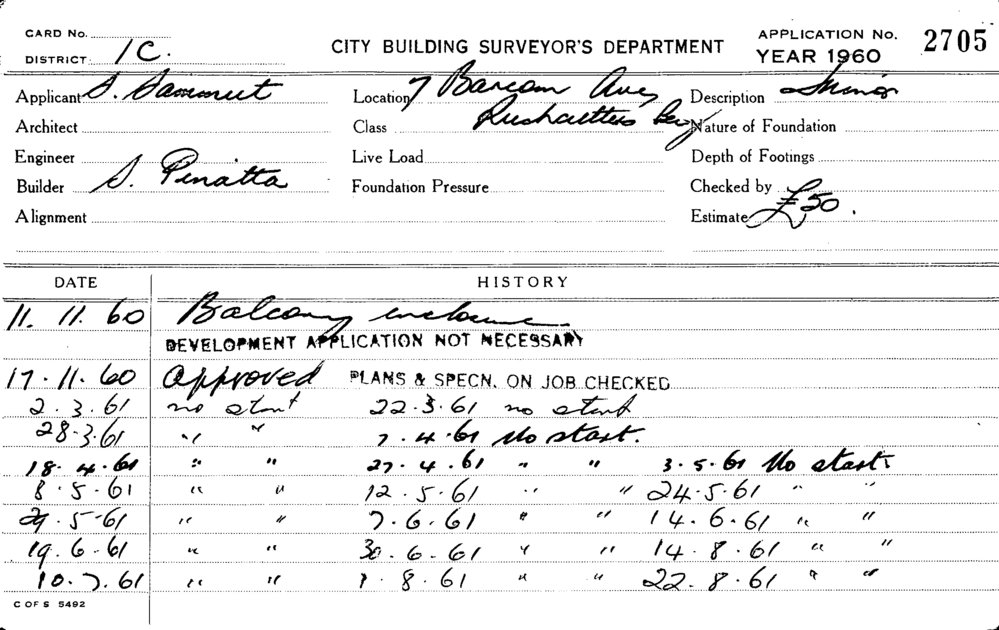 CARD No.
DISTRICT 1C.
CITY BUILDING SURVEYOR'S DEPARTMENT
APPLICATION No. 2705
YEAR 1960
Applicant S. Sammut Location 7 Barcom Ave, Description Minor
Architect Class Rushcutters Bay Nature of Foundation
Engineer Live Load Depth of Footings
Builder S. Pinatta Foundation Pressure Checked by
Alignment Estimate £50.
DATE HISTORY
11. 11. 60 Balcony enclosure.
DEVELOPMENT APPLICATION NOT NECESSARY
17. 11. 60 Approved PLANS & SPECN. ON JOB CHECKED
2. 3. 61 no start 22. 3. 61 no start
28. 3. 61 " " 7. 4. 61 No start.
18. 4. 61 " " 27. 4. 61 " " 3. 5. 61 No start.
8. 5. 61 " " 12. 5. 61 " " 24. 5. 61 " "
29. 5. 61 " " 7. 6. 61 " " 14. 6. 61 " "
19. 6. 61 " " 30. 6. 61 " " 14. 8. 61 " "
10. 7. 61 " " 1. 8. 61 " " 22. 8. 61 " "
C OF S 5492